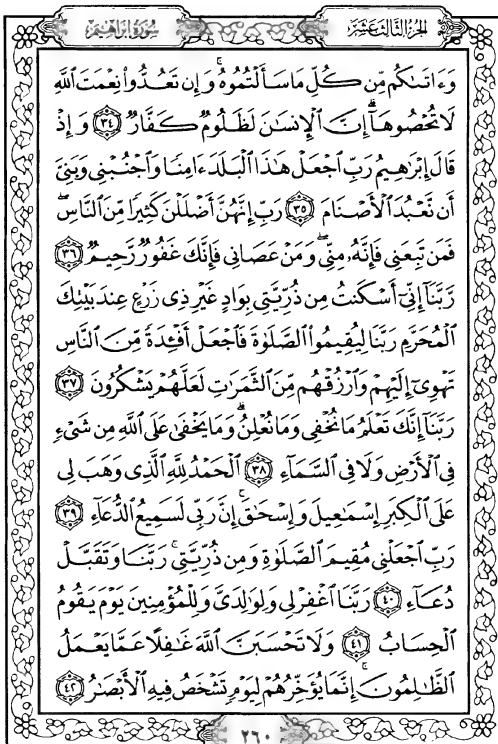 سُورَةُ إِبْرَاهِيمَ
الجُزْءُ الثَّالِثَ عَشَرَ
وَءَاتَىٰكُم مِّن كُلِّ مَا سَأَلْتُمُوهُ ۚ وَإِن تَعُدُّوا۟ نِعْمَتَ ٱللَّهِ
لَا تُحْصُوهَآ ۗ إِنَّ ٱلْإِنسَٰنَ لَظَلُومٌ كَفَّارٌ ٣٤ وَإِذْ
قَالَ إِبْرَٰهِيمُ رَبِّ ٱجْعَلْ هَٰذَا ٱلْبَلَدَ ءَامِنًا وَٱجْنُبْنِى وَبَنِىَّ
أَن نَّعْبُدَ ٱلْأَصْنَامَ ٣٥ رَبِّ إِنَّهُنَّ أَضْلَلْنَ كَثِيرًا مِّنَ ٱلنَّاسِ ۖ
فَمَن تَبِعَنِى فَإِنَّهُۥ مِنِّى ۖ وَمَنْ عَصَانِى فَإِنَّكَ غَفُورٌ رَّحِيمٌ ٣٦
رَّبَّنَآ إِنِّىٓ أَسْكَنتُ مِن ذُرِّيَّتِى بِوَادٍ غَيْرِ ذِى زَرْعٍ عِندَ بَيْتِكَ
ٱلْمُحَرَّمِ رَبَّنَا لِيُقِيمُوا۟ ٱلصَّلَوٰةَ فَٱجْعَلْ أَفْـِٔدَةً مِّنَ ٱلنَّاسِ
تَهْوِىٓ إِلَيْهِمْ وَٱرْزُقْهُم مِّنَ ٱلثَّمَرَٰتِ لَعَلَّهُمْ يَشْكُرُونَ ٣٧
رَبَّنَآ إِنَّكَ تَعْلَمُ مَا نُخْفِى وَمَا نُعْلِنُ ۗ وَمَا يَخْفَىٰ عَلَى ٱللَّهِ مِن شَىْءٍ
فِى ٱلْأَرْضِ وَلَا فِى ٱلسَّمَآءِ ٣٨ ٱلْحَمْدُ لِلَّهِ ٱلَّذِى وَهَبَ لِى
عَلَى ٱلْكِبَرِ إِسْمَٰعِيلَ وَإِسْحَٰقَ ۚ إِنَّ رَبِّى لَسَمِيعُ ٱلدُّعَآءِ ٣٩
رَبِّ ٱجْعَلْنِى مُقِيمَ ٱلصَّلَوٰةِ وَمِن ذُرِّيَّتِى ۚ رَبَّنَا وَتَقَبَّلْ
دُعَآءِ ٤٠ رَبَّنَا ٱغْفِرْ لِى وَلِوَٰلِدَىَّ وَلِلْمُؤْمِنِينَ يَوْمَ يَقُومُ
ٱلْحِسَابُ ٤١ وَلَا تَحْسَبَنَّ ٱللَّهَ غَٰفِلًا عَمَّا يَعْمَلُ
ٱلظَّٰلِمُونَ ۚ إِنَّمَا يُؤَخِّرُهُمْ لِيَوْمٍ تَشْخَصُ فِيهِ ٱلْأَبْصَٰرُ ٤٢
٢٦٠